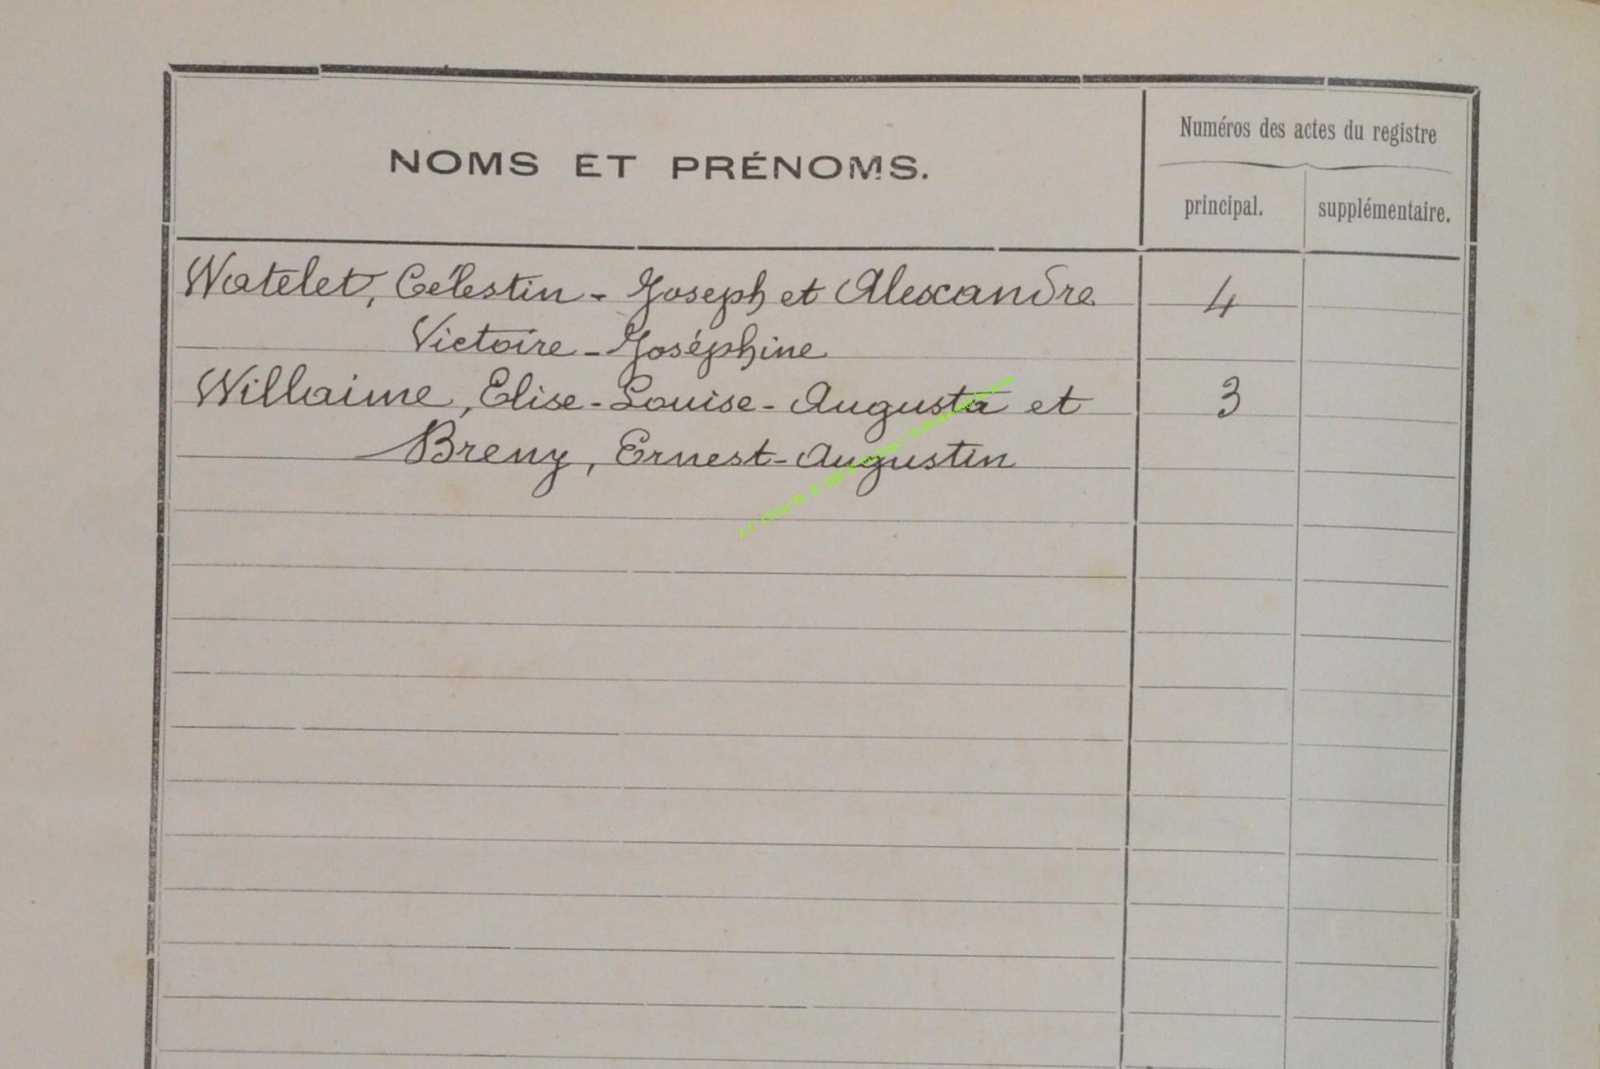 NOMS ET PRÉNOMS.
Numéros des actes du registre
principal.
supplémentaire.
Watelet, Célestin - Joseph et Alexandre 4
Victoire - Joséphine
Willaime, Elise - Louise - Augusta et 3
Breny, Ernest - Augustin